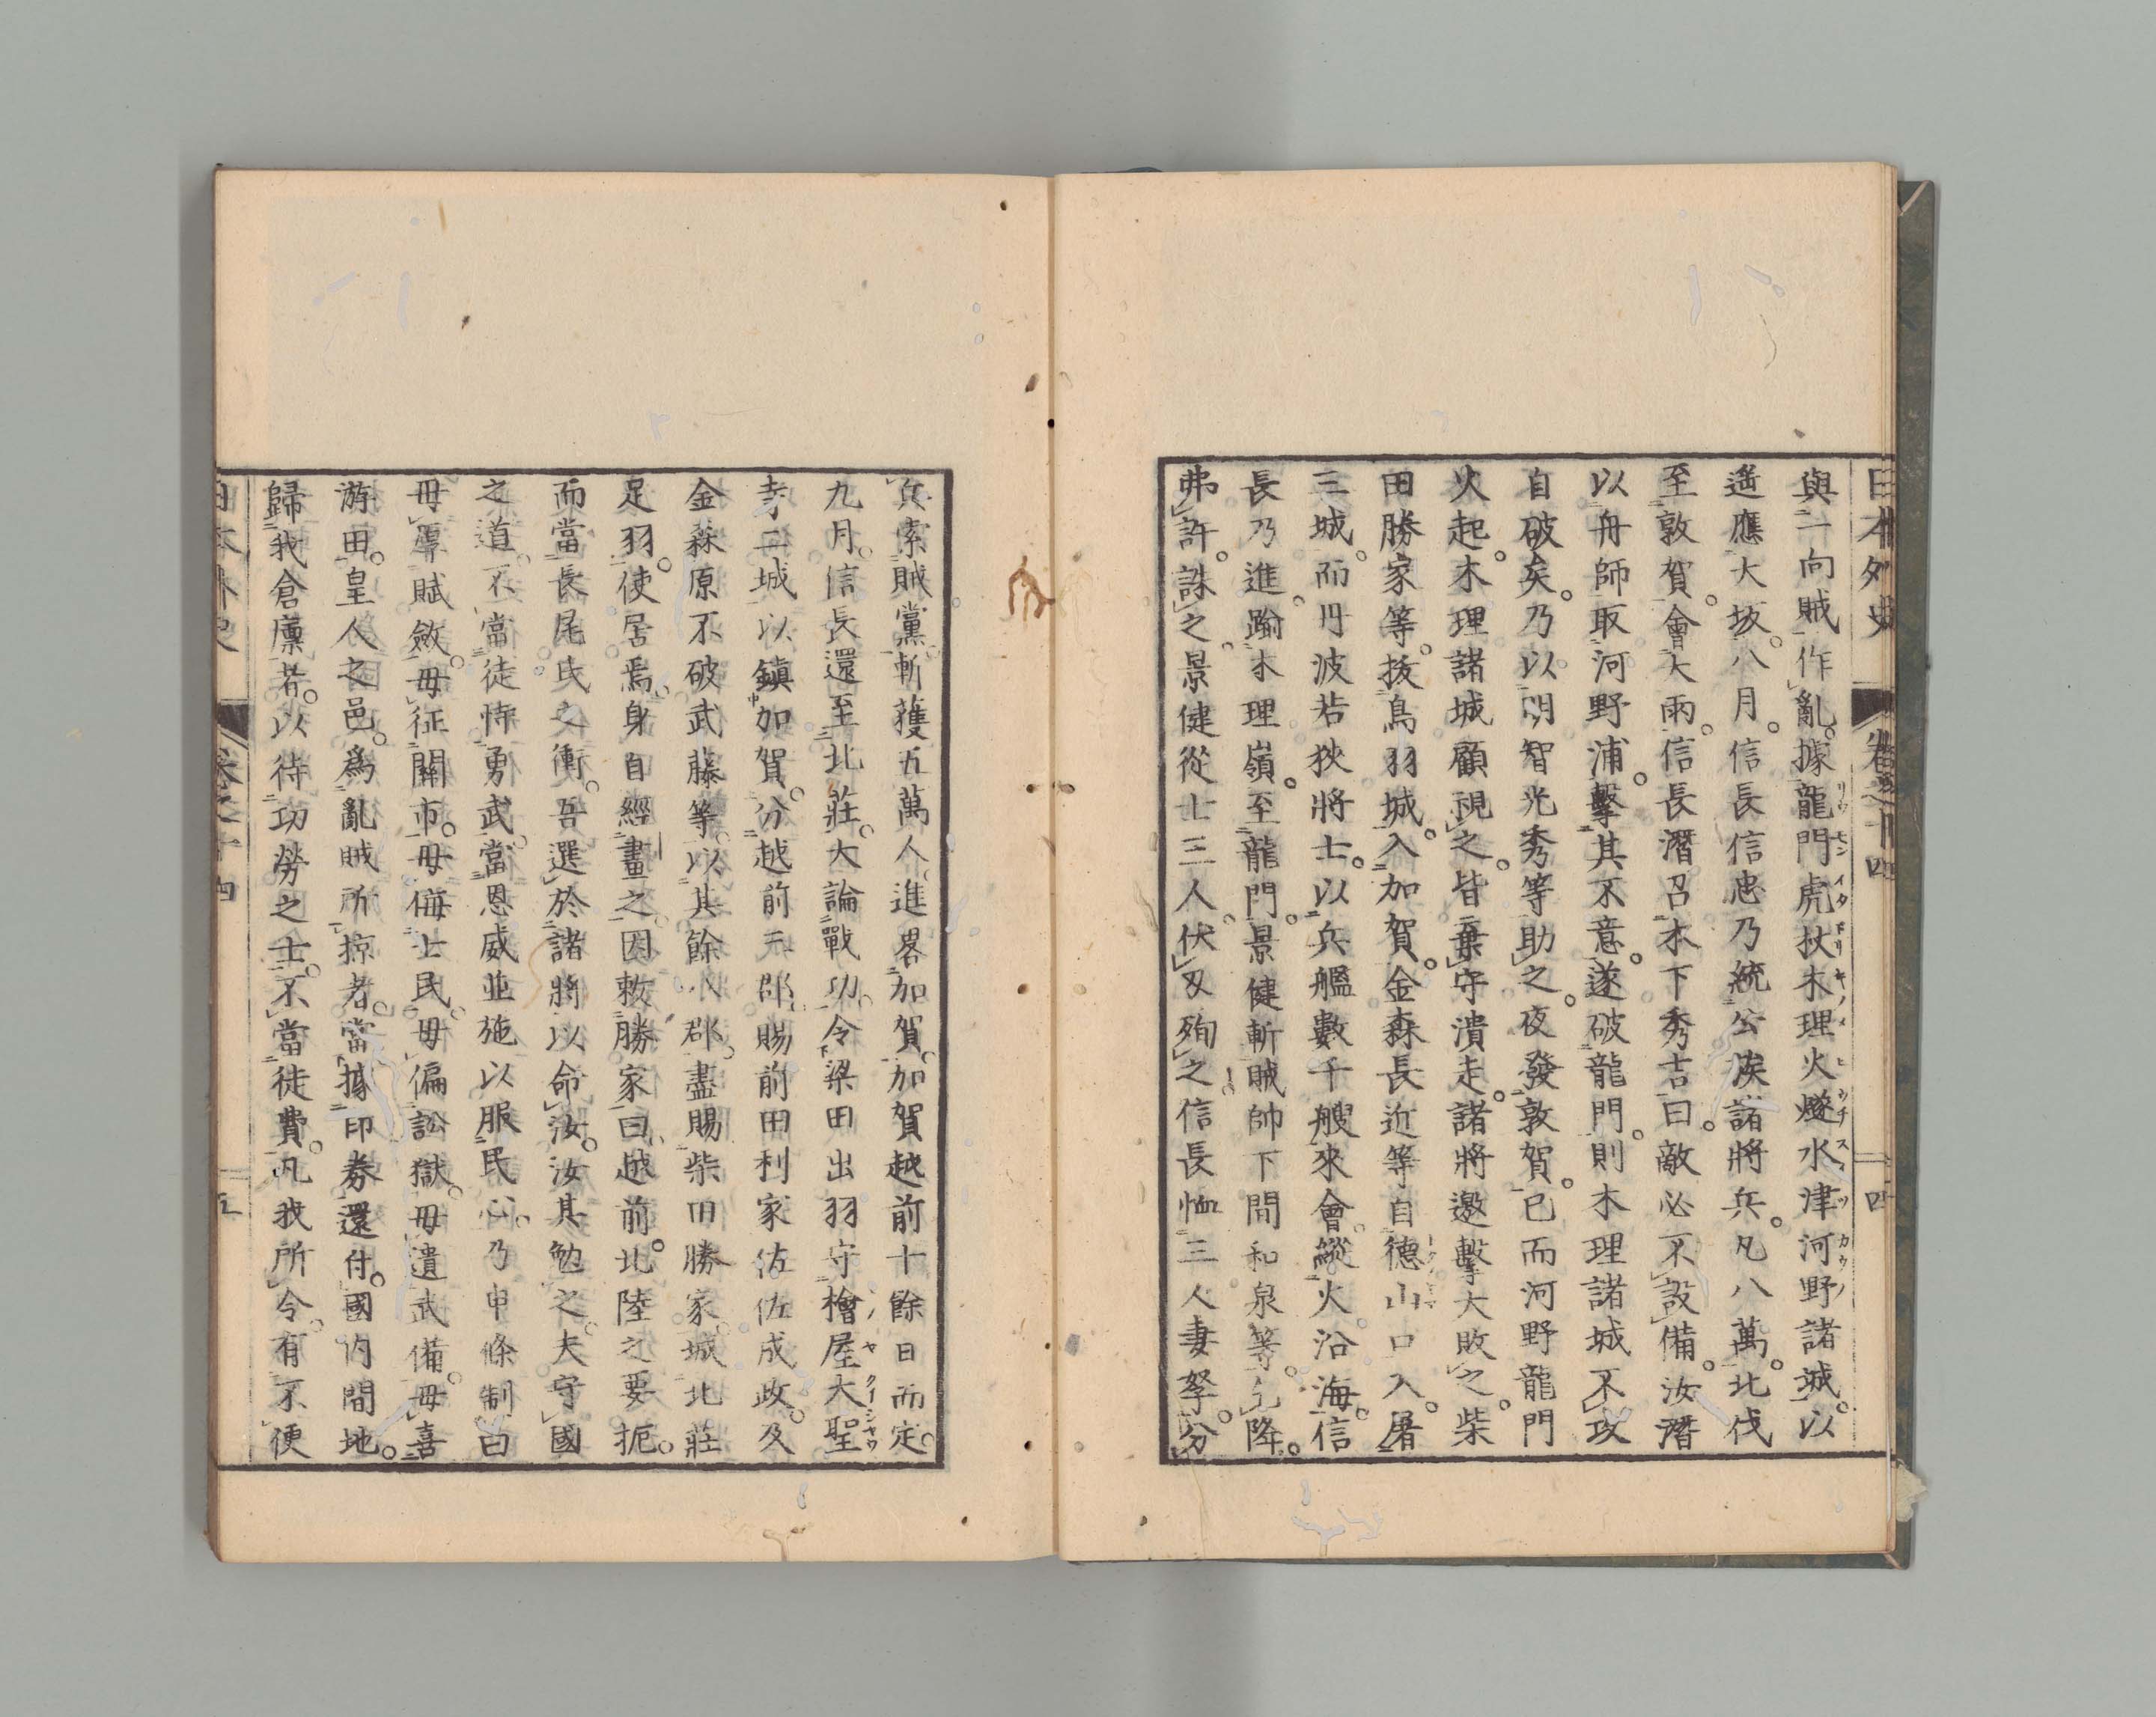 日本外史 卷之十四 四
與一向賊作亂。據龍門虎杖木理火燧水津河野諸城。以
遙應大坂。八月。信長信忠乃統公族諸將兵。凡八萬。北伐
至敦賀。會大雨。信長潛召木下秀吉曰。敵必不設備。汝潛
以舟師取河野浦。擊其不意。遂破龍門。則木理諸城不攻
自破矣。乃以明智光秀等助之。夜發敦賀。已而河野龍門
火起。木理諸城顧視之。皆棄守潰走。諸將邀擊大敗之。柴
田勝家等。拔鳥羽城。入加賀。金森長近等自德山口入。屠
三城。而丹波若狹將士。以兵艦數千艘來會。縱火沿海。信
長乃進踰木理嶺。至龍門。景健斬賊帥下間和泉等。乞降。
弗許。誅之。景健從士三人。伏刃殉之。信長恤三人妻孥。分
兵索賊黨。斬獲五萬人。進畧加賀。加賀越前十餘日而定。
九月。信長還至北莊。大論戰功。令梁田出羽守檜屋大聖
寺二城。以鎮加賀。分越前三郡。賜前田利家佐佐成政。及
金森原不破武藤等。以其餘八郡。盡賜柴田勝家。城北莊
足羽。使居焉。身自經畫之。因敕勝家曰。越前。北陸之要扼。
而當長尾氏之衝。吾選於諸將以命汝。汝其勉之。夫守國
之道。不當徒恃勇武。當恩威並施以服民心。乃申條制曰
毋厚賦斂。毋征關市。毋侮士民。毋偏訟獄。毋遺武備。毋喜
游田。皇人之邑。爲亂賊所掠者。當據印券還付。國內間地。
歸我倉廩者。以待功勞之士。不當徒費。凡我所令。有不便
日本外史 卷之十四 五